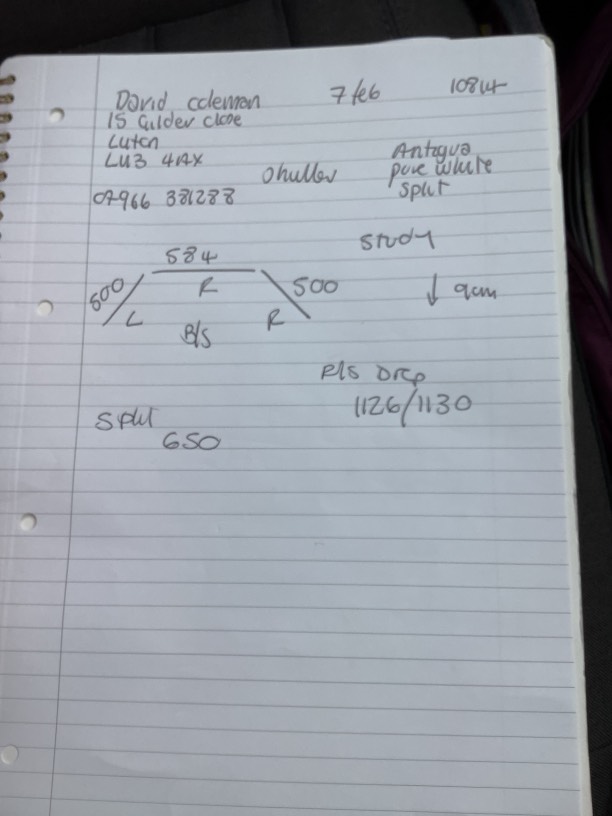 David Coleman 7 feb 10814
15 Gilder close
Luton
LU3 4AX
07966 381288
Antigua
pure white
split
study
584
600 500
R
L R
B/S
↓ 9cm
P/S Drop
1126/1130
Split
650